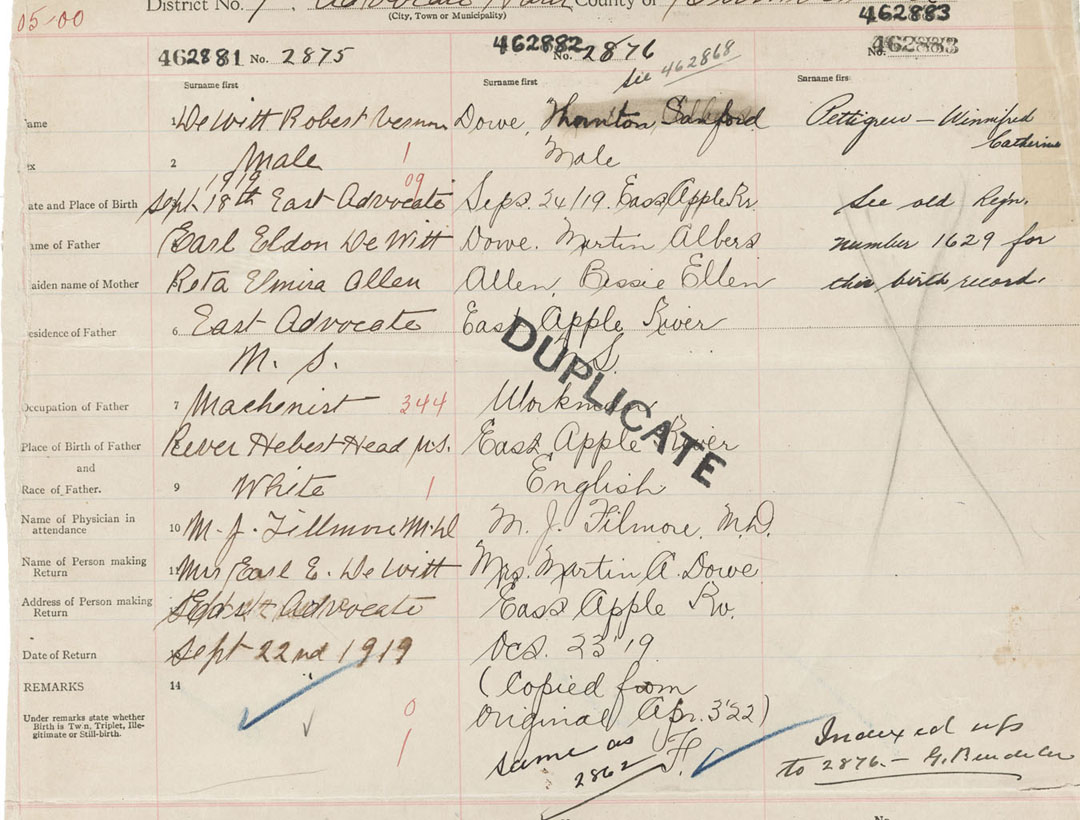 District No. 7. Advocate County of
(City, Town or Municipality)
05-00
462883
462881 No. 2875
462882 No. 2876
No. 462883
see 462868
Surname first
Surname first
Surname firs
ame
1 DeWitt Robert Vernon
Dowe, Thornton Sanford
Pettigrew - Winnifred Catherine
ex
2 Male 1
Male
1919 09
ate and Place of Birth
Sept. 18th East Advocate
Sept. 24/19. East Apple Rr.
See old Regn.
ame of Father
Earl Eldon DeWitt
Dowe. Martin Albert
number 1629 for
aiden name of Mother
Reta Elmira Allen
Allen, Bessie Ellen
this birth record.
esidence of Father
6 East Advocate
East Apple River
N. S.
N.S.
DUPLICATE
Occupation of Father
7 Machenist 344
Workman
Place of Birth of Father
River Hebert Head N.S.
East Apple River
and
Race of Father.
9 White 1
English
Name of Physician in
attendance
10 M. J. Fillmore M.D
M. J. Filmore, M.D.
Name of Person making
Return
11 Mrs Earl E. DeWitt
Mrs. Martin A. Dowe
Address of Person making
Return
East Advocate
East Apple Rv.
Date of Return
Sept 22nd 1919
Oct. 23 '19
REMARKS
14
(Copied from
original Apr. 3'22)
Under remarks state whether
Birth is Twin, Triplet, Ille-
gitimate or Still-birth.
0
1
same as
2862
F.
Indexed up
to 2876. - G.
No.